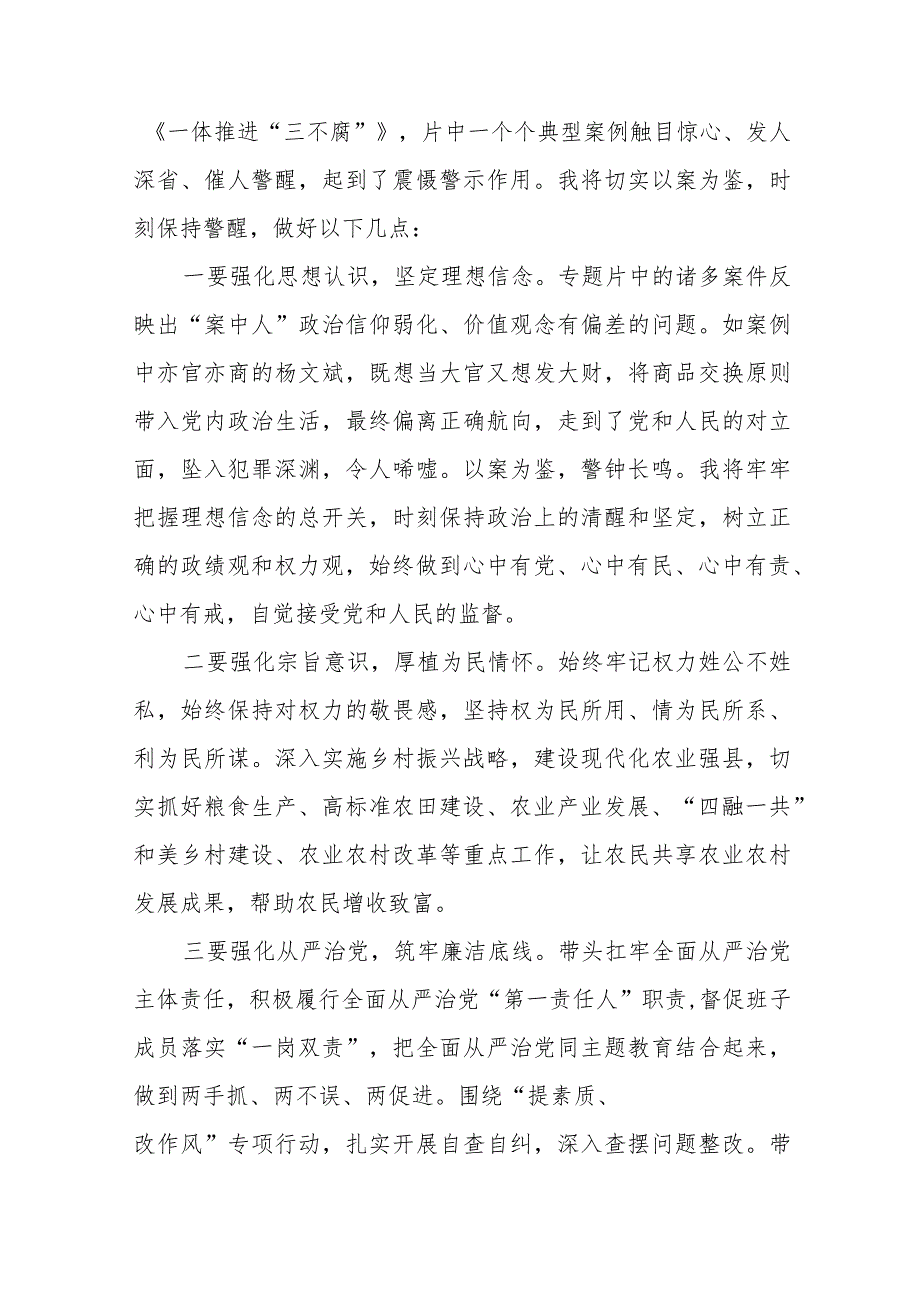 《一体推进“三不腐”》，片中一个个典型案例触目惊心、发人
深省、催人警醒，起到了震慑警示作用。我将切实以案为鉴，时
刻保持警醒，做好以下几点：
一要强化思想认识，坚定理想信念。专题片中的诸多案件反
映出“案中人”政治信仰弱化、价值观念有偏差的问题。如案例
中亦官亦商的杨文斌，既想当大官又想发大财，将商品交换原则
带入党内政治生活，最终偏离正确航向，走到了党和人民的对立
面，坠入犯罪深渊，令人唏嘘。以案为鉴，警钟长鸣。我将牢牢
把握理想信念的总开关，时刻保持政治上的清醒和坚定，树立正
确的政绩观和权力观，始终做到心中有党、心中有民、心中有责、
心中有戒，自觉接受党和人民的监督。
二要强化宗旨意识，厚植为民情怀。始终牢记权力姓公不姓
私，始终保持对权力的敬畏感，坚持权为民所用、情为民所系、
利为民所谋。深入实施乡村振兴战略，建设现代化农业强县，切
实抓好粮食生产、高标准农田建设、农业产业发展、“四融一共”
和美乡村建设、农业农村改革等重点工作，让农民共享农业农村
发展成果，帮助农民增收致富。
三要强化从严治党，筑牢廉洁底线。带头扛牢全面从严治党
主体责任，积极履行全面从严治党“第一责任人”职责,督促班子
成员落实“一岗双责”，把全面从严治党同主题教育结合起来，
做到两手抓、两不误、两促进。围绕“提素质、
改作风”专项行动，扎实开展自查自纠，深入查摆问题整改。带